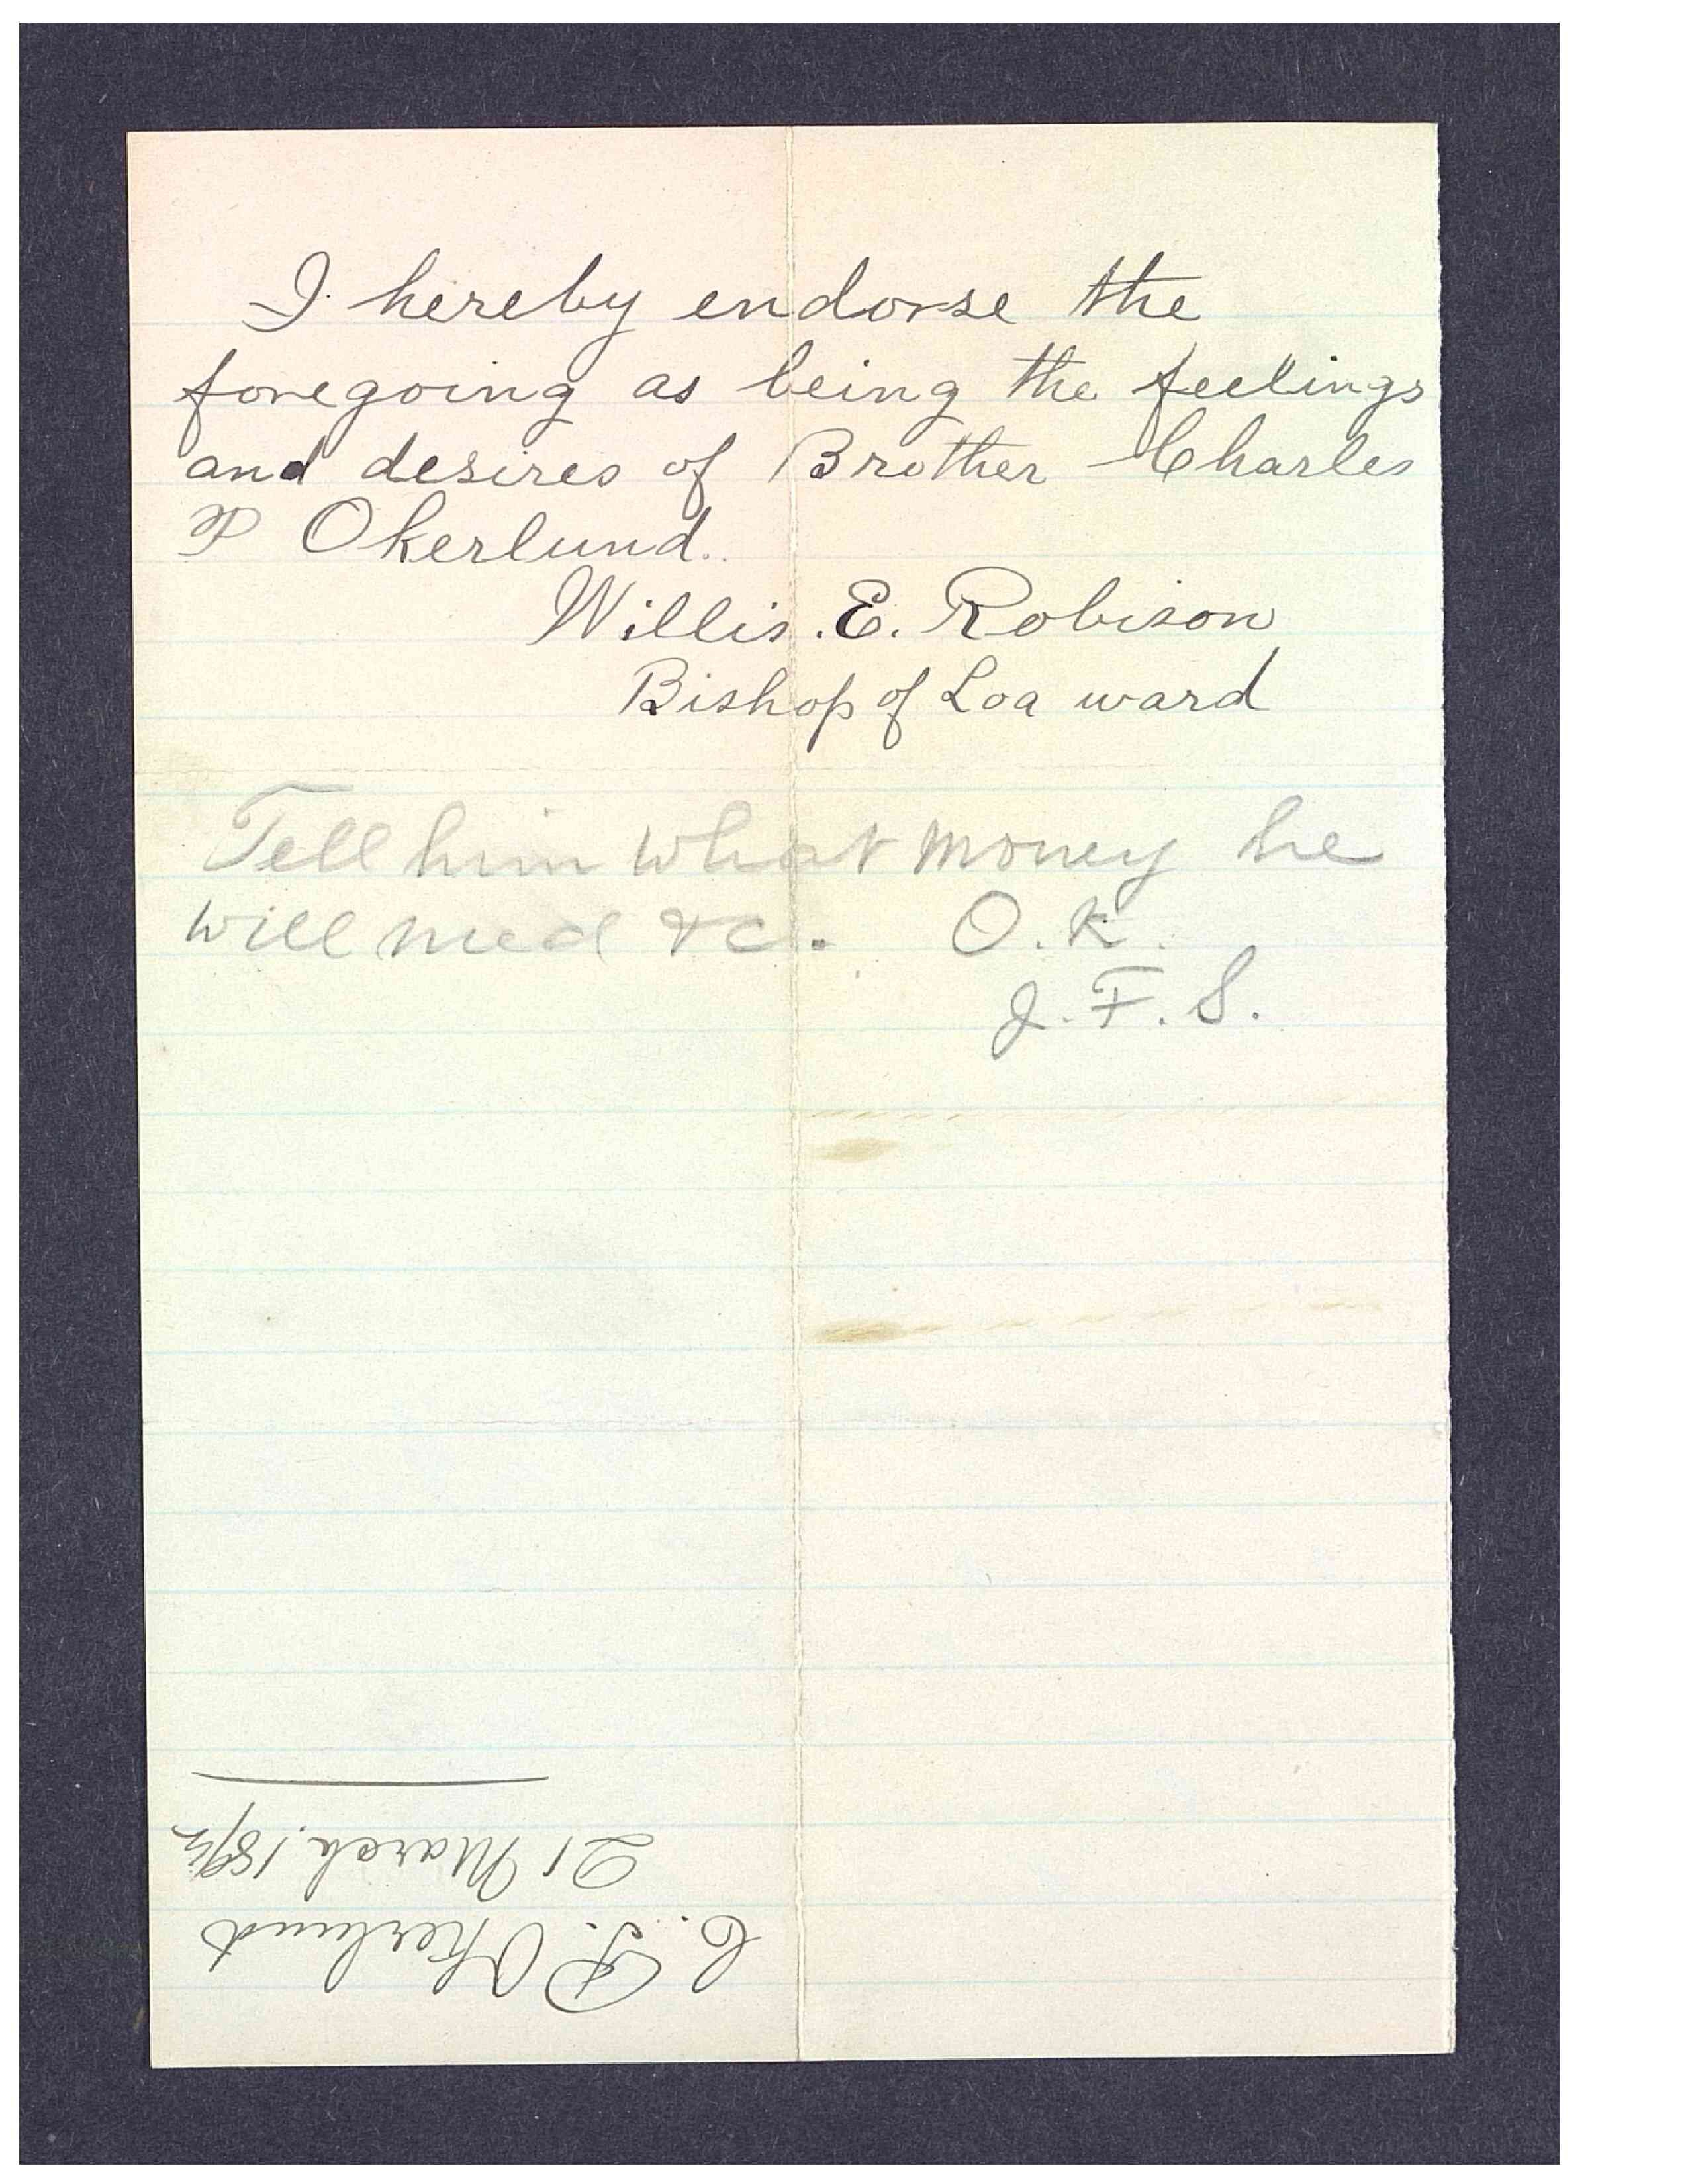 I hereby endorse the
foregoing as being the feelings
and desires of Brother Charles
P Okerlund.
Willis. E. Robison
Bishop of Loa ward
Tell him what money he
will need &c. O.K.
J. F. S.
C. P. Okerlund
21 March